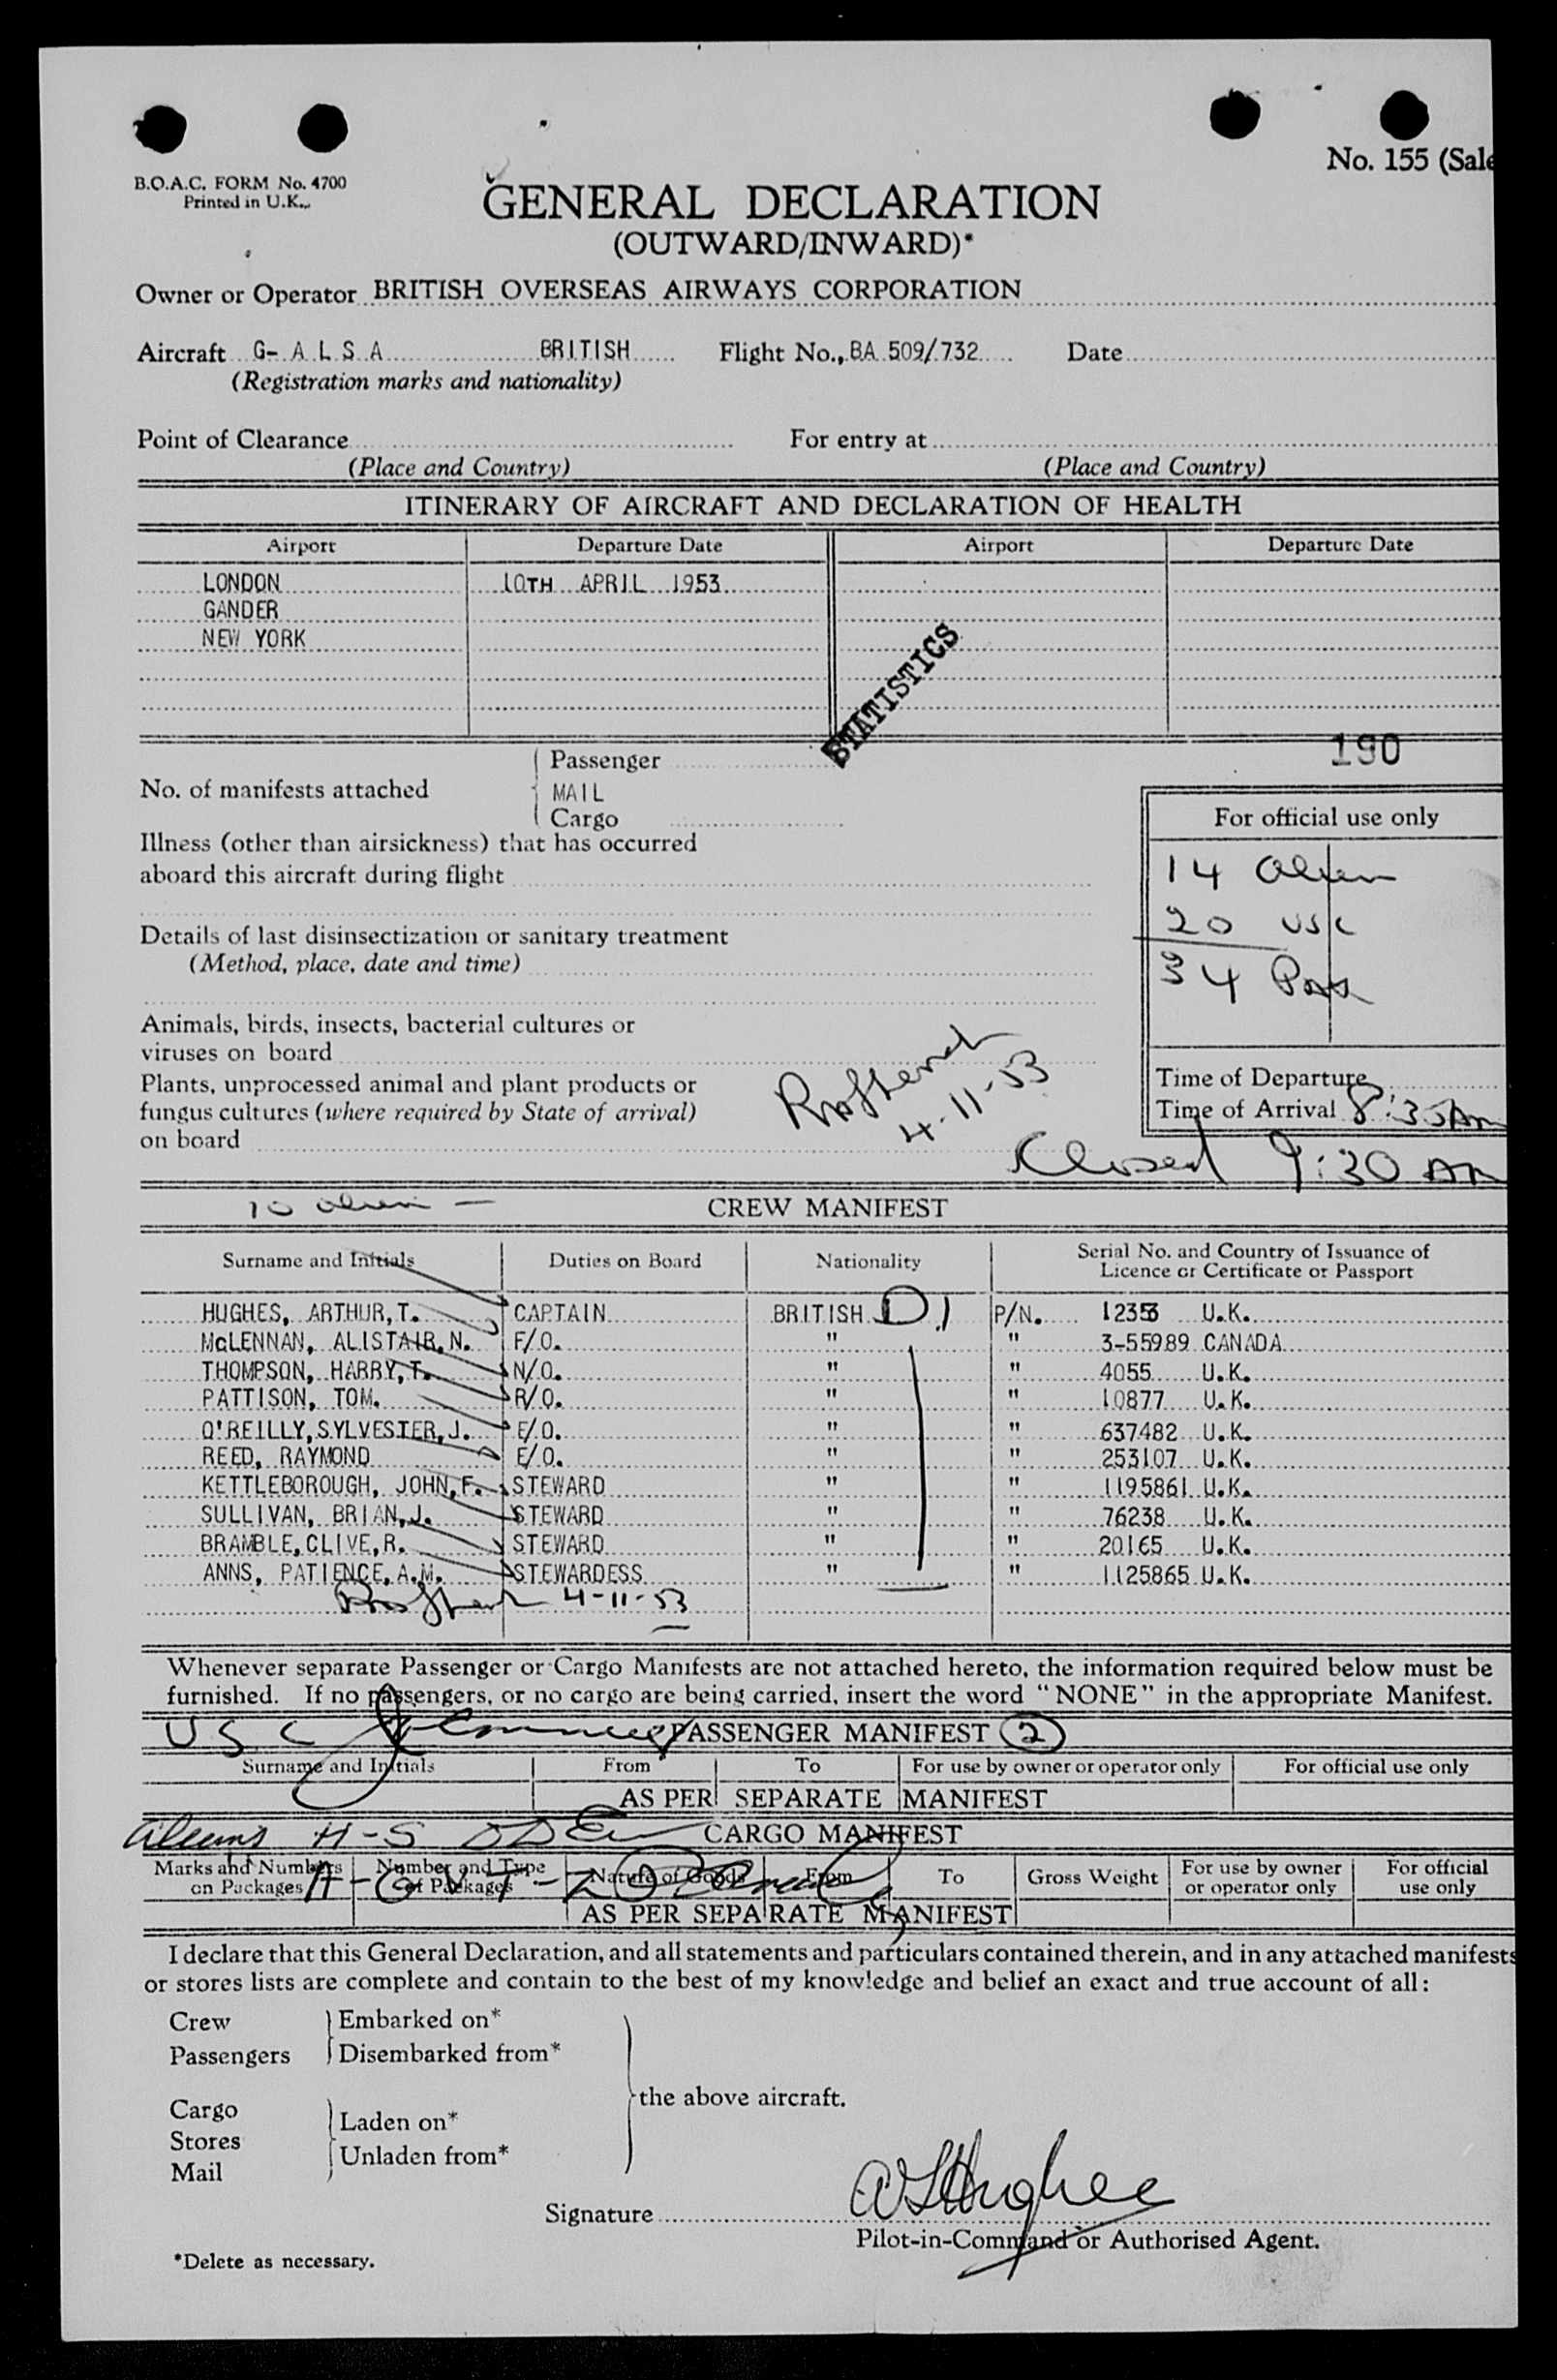 No. 155 (Sale
B.O.A.C. FORM No. 4700
Printed in U.K.
GENERAL DECLARATION
(OUTWARD/INWARD)*
Owner or Operator BRITISH OVERSEAS AIRWAYS CORPORATION
Aircraft G- A L S A BRITISH Flight No., BA 509/732 Date
(Registration marks and nationality)
Point of Clearance For entry at
(Place and Country) (Place and Country)
ITINERARY OF AIRCRAFT AND DECLARATION OF HEALTH
Airport Departure Date Airport Departure Date
LONDON 10TH APRIL 1953
GANDER
NEW YORK
STATISTICS
190
Passenger
No. of manifests attached MAIL
Cargo
For official use only
Illness (other than airsickness) that has occurred
aboard this aircraft during flight
14 Alien
20 USC
34 Pass
Details of last disinsectization or sanitary treatment
(Method, place, date and time)
Animals, birds, insects, bacterial cultures or
viruses on board
Plants, unprocessed animal and plant products or
fungus cultures (where required by State of arrival)
on board
4-11-53
Time of Departure
Time of Arrival 8:35 Am
Closed 9:30 AM
10 alien - CREW MANIFEST
Surname and Initials Duties on Board Nationality Serial No. and Country of Issuance of
Licence or Certificate or Passport
HUGHES, ARTHUR, T. CAPTAIN BRITISH D1 P/N. 12353 U.K.
McLENNAN, ALISTAIR, N. F/O. " " 3-55989 CANADA
THOMPSON, HARRY, T. N/O. " " 4055 U.K.
PATTISON, TOM. R/O. " " 10877 U.K.
O'REILLY, SYLVESTER, J. E/O. " " 637482 U.K.
REED, RAYMOND E/O. " " 253107 U.K.
KETTLEBOROUGH, JOHN, F. STEWARD " " 1195861 U.K.
SULLIVAN, BRIAN, J. STEWARD " " 76238 U.K.
BRAMBLE, CLIVE, R. STEWARD " " 20165 U.K.
ANNS, PATIENCE, A.M. STEWARDESS " " 1125865 U.K.
4-11-53
Whenever separate Passenger or Cargo Manifests are not attached hereto, the information required below must be
furnished. If no passengers, or no cargo are being carried, insert the word "NONE" in the appropriate Manifest.
USC PASSENGER MANIFEST 2
Surname and Initials From To For use by owner or operator only For official use only
AS PER SEPARATE MANIFEST
Aliens H-S CARGO MANIFEST
Marks and Numbers on Packages Number and Type of Packages Nature of Goods From To Gross Weight For use by owner or operator only For official use only
AS PER SEPARATE MANIFEST
I declare that this General Declaration, and all statements and particulars contained therein, and in any attached manifests
or stores lists are complete and contain to the best of my knowledge and belief an exact and true account of all:
Crew Embarked on*
Passengers Disembarked from*
the above aircraft.
Cargo Laden on*
Stores
Mail Unladen from*
Signature ATHughes
Pilot-in-Command or Authorised Agent.
*Delete as necessary.